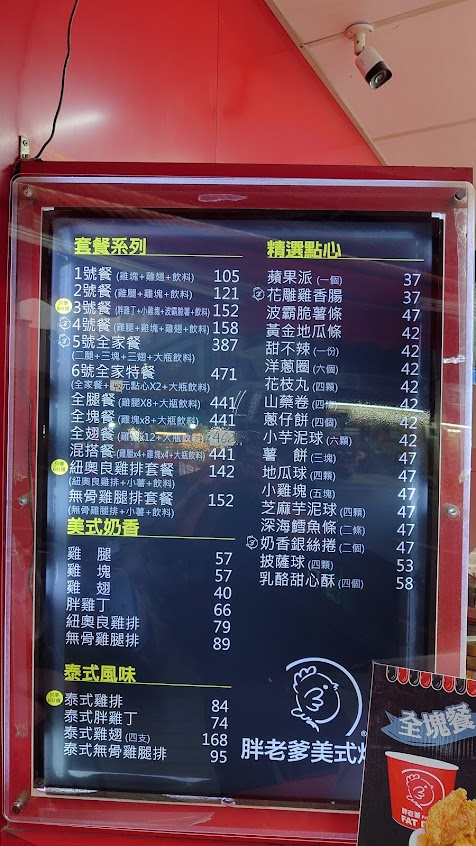 套餐系列
1號餐 (雞塊+雞翅+飲料) 105
2號餐 (雞腿+雞塊+飲料) 121
3號餐 (胖雞丁+小雞塊+波霸脆薯+飲料) 152
4號餐 (雞腿+雞塊+雞翅+飲料) 158
5號全家餐 387
(二腿+三塊+三翅+大瓶飲料)
6號全家特餐 471
(全家餐+元點心X2+大瓶飲料)
全腿餐 (雞腿X8+大瓶飲料) 441
全塊餐 (雞塊x8+大瓶飲料) 441
全翅餐 (雞翅x12+大瓶飲料)
混搭餐 (雞腿x4+雞塊x4+大瓶飲料) 441
紐奧良雞排套餐 142
(紐奧良雞排+小薯+飲料)
無骨雞腿排套餐 152
(無骨雞腿排+小薯+飲料)
美式奶香
雞腿 57
雞塊 57
雞翅 40
胖雞丁 66
紐奧良雞排 79
無骨雞腿排 89
泰式風味
泰式雞排 84
泰式胖雞丁 74
泰式雞翅 (四支) 168
泰式無骨雞腿排 95
精選點心
蘋果派 (一個) 37
花雕雞香腸 37
波霸脆薯條 47
黃金地瓜條 42
甜不辣 (一份) 42
洋蔥圈 (六個) 42
花枝丸 (四顆) 42
山藥卷 (四條) 42
蔥仔餅 (四個) 42
小芋泥球 (六顆) 42
薯餅 (三塊) 47
地瓜球 (四顆) 47
小雞塊 (五塊) 47
芝麻芋泥球 (四顆) 47
深海鱈魚條 (二條) 47
奶香銀絲捲 (二個) 47
披薩球 (四顆) 53
乳酪甜心酥 (四個) 58
胖老爹美式炸
全塊餐
胖老爹
FAT D